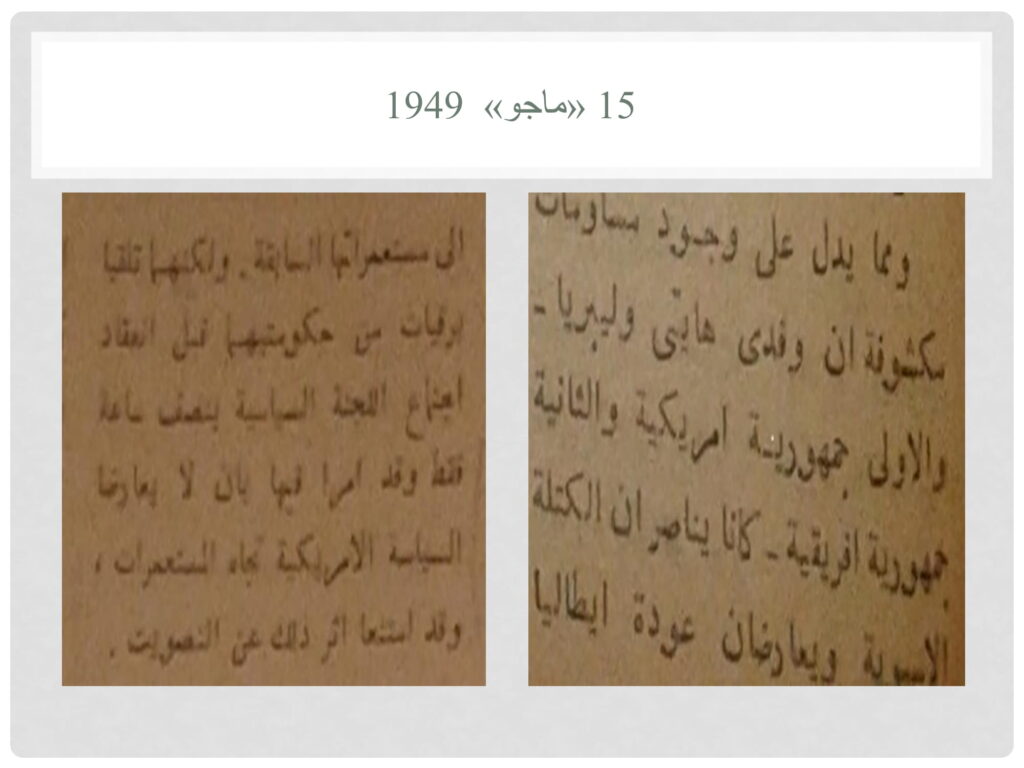 15 «ماجو» 1949
ومما يدل على وجود مساومات
مكشوفة ان وفدى هايتى وليبريا ـ
والاولى جمهورية امريكية والثانية
جمهورية افريقية ـ كانا يناصران الكتلة
الاسيوية ويعارضان عودة ايطاليا
الى مستعمراتها السابقة . ولكنهما تلقيا
برقيات من حكومتيهما قبل انعقاد
اجتماع اللجنة السياسية بنصف ساعة
فقط وقد امرا فيها بان لا يعارضا
السياسة الامريكية تجاه المستعمرات ،
وقد امتنعا اثر ذلك عن التصويت .